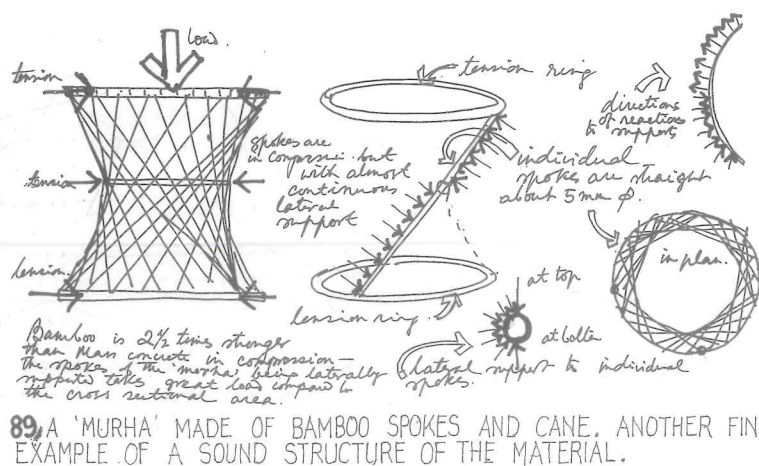 load.
tension
tension
tension.
spokes are
in compressn. but
with almost
continuous
lateral
support
tension ring
individual
spokes are straight
about 5mm φ.
directions
of reactions
to supports
in plan.
tension ring.
at top
at bottom
lateral support to individual
spokes.
Bamboo is 2½ times stronger
than mass concrete in compression—
the spokes of the 'morha' being laterally
supported takes great load compared to
the cross sectional area.
89, A 'MURHA' MADE OF BAMBOO SPOKES AND CANE. ANOTHER FIN
EXAMPLE OF A SOUND STRUCTURE OF THE MATERIAL.